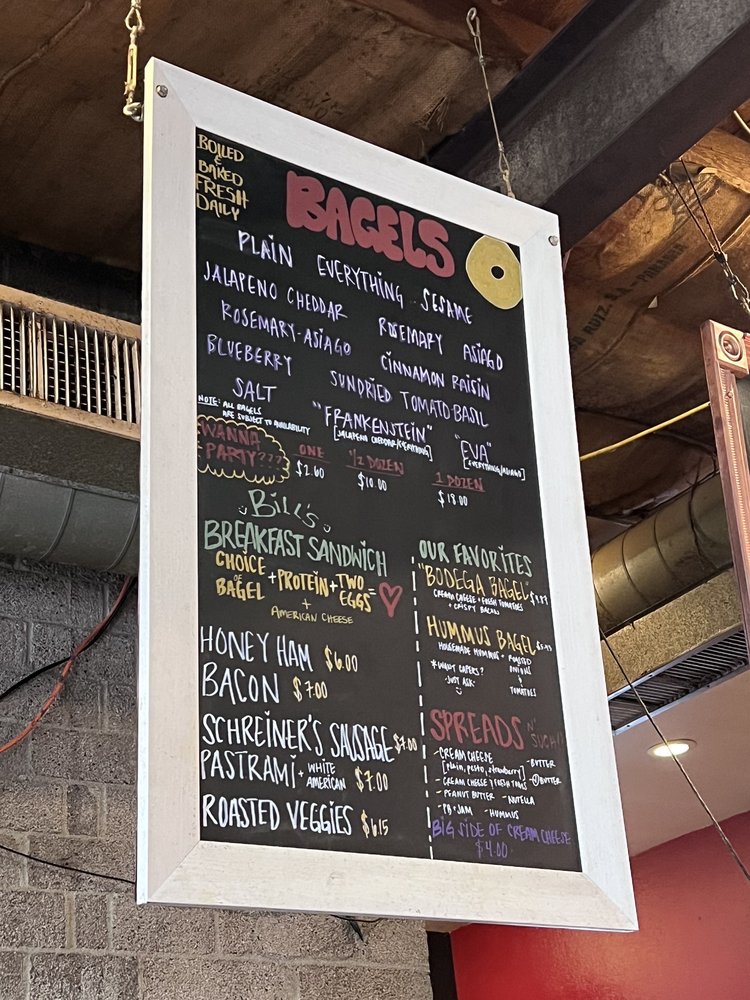 BOILED
&
BAKED
FRESH
DAILY
BAGELS
PLAIN EVERYTHING SESAME
JALAPENO CHEDDAR
ROSEMARY-ASIAGO ROSEMARY ASIAGO
BLUEBERRY CINNAMON RAISIN
SALT SUNDRIED TOMATO BASIL
NOTE: ALL BAGELS
ARE SUBJECT TO AVAILABILITY
"FRANKENSTEIN"
[JALAPENO CHEDDAR/EVERYTHING]
"EVA"
[EVERYTHING/ASIAGO]
WANNA
PARTY???
ONE
$2.60
1/2 DOZEN
$10.00
1 DOZEN
$18.00
BILL'S
BREAKFAST SANDWICH
CHOICE
OF
BAGEL
+ PROTEIN + TWO
EGGS =
+
AMERICAN CHEESE
HONEY HAM $6.00
BACON $7.00
SCHREINER'S SAUSAGE $7.00
PASTRAMI + WHITE
AMERICAN $7.00
ROASTED VEGGIES $6.15
OUR FAVORITES
"BODEGA BAGEL"
CREAM CHEESE + FRESH TOMATOES
+ CRISPY BACON
HUMMUS BAGEL
HOMEMADE HUMMUS + ROASTED
ONIONS
&
TOMATOES
*WANT CAPERS?
-JUST ASK-
SPREADS N' SUCH!
-CREAM CHEESE
[plain, pesto, strawberry]
- CREAM CHEESE + FRESH TOMS
- PEANUT BUTTER - NUTELLA
- PB + JAM - HUMMUS
-BUTTER
BUTTER
BIG SIDE OF CREAM CHEESE
$4.00
RUIZ, S.A.